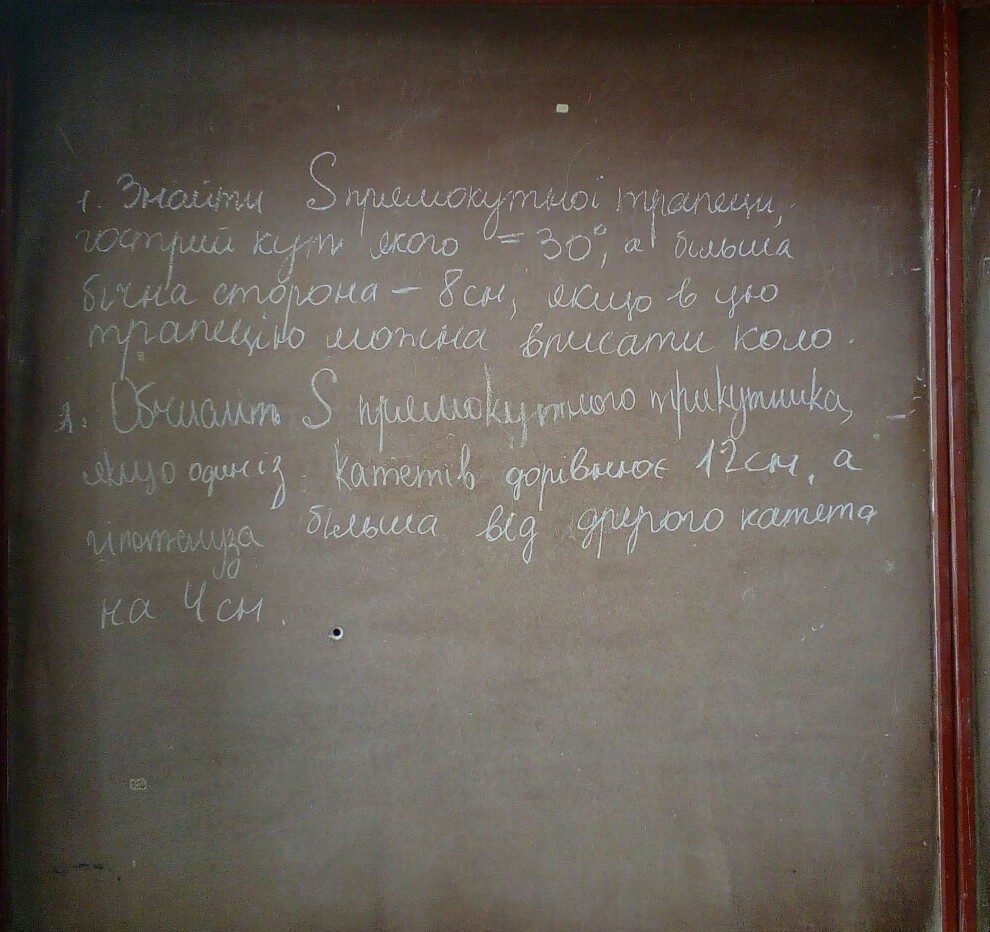 1. Знайти S прямокутної трапеции,
гострий кут якого = 30°, а більша
бічна сторона - 8см, якщо в цю
трапецію можна вписати коло.
1. Обчисліть S прямокутного трикутника,
якщо один із катетів дорівнює 12см, а
гіпотенуза більша від другого катета
на 4 см.